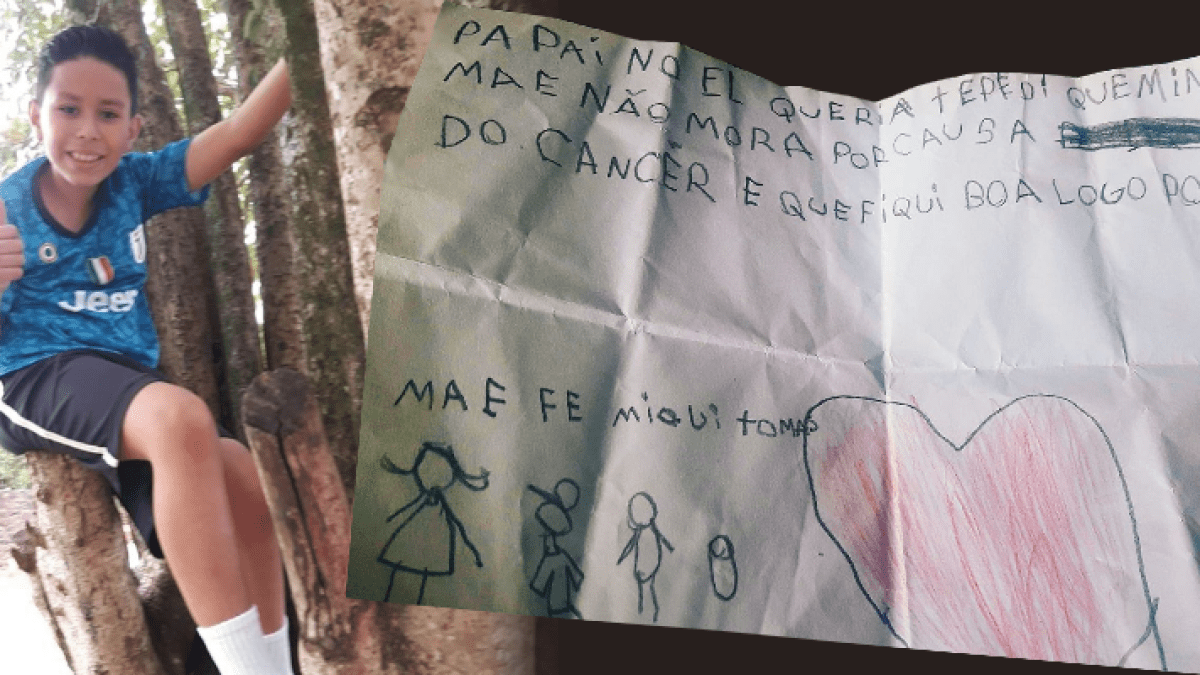 PAPAI NO EL QUERIA TEPEDI QUEMIN
MAE NÃO MORA PORCAUSA
DO. CANCÊR E QUEFIQUI BOA LOGO PO
MAE FE MIQUI TOMAS
Jeep